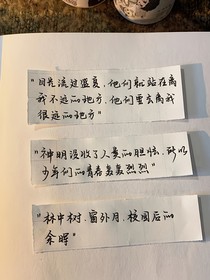 "目光流过盛夏,他们就站在离
我不远的地方,他们要去离我
很远的地方"
"神明没收了人类的胆怯,所以
少年们的青春轰轰烈烈"
"林中树,窗外月,校园后的
余晖"